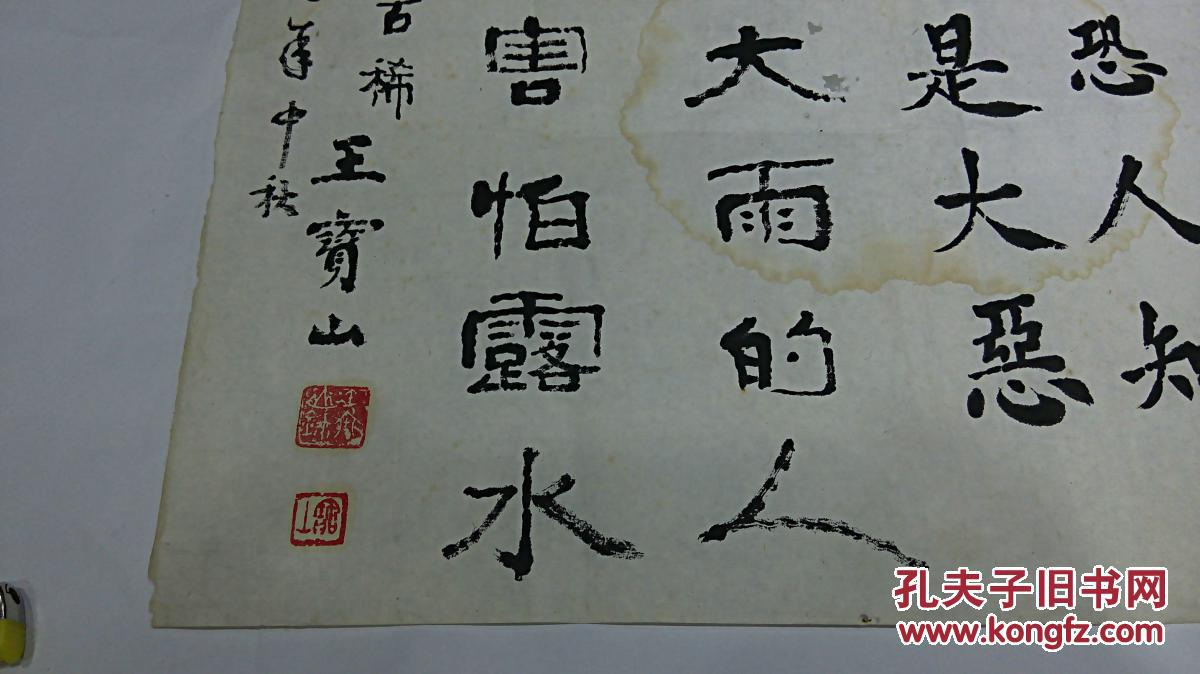 恐人知
是大惡
大雨的人
害怕露水
古稀
王寶山
年中秋
孔夫子旧书网
www.kongfz.com